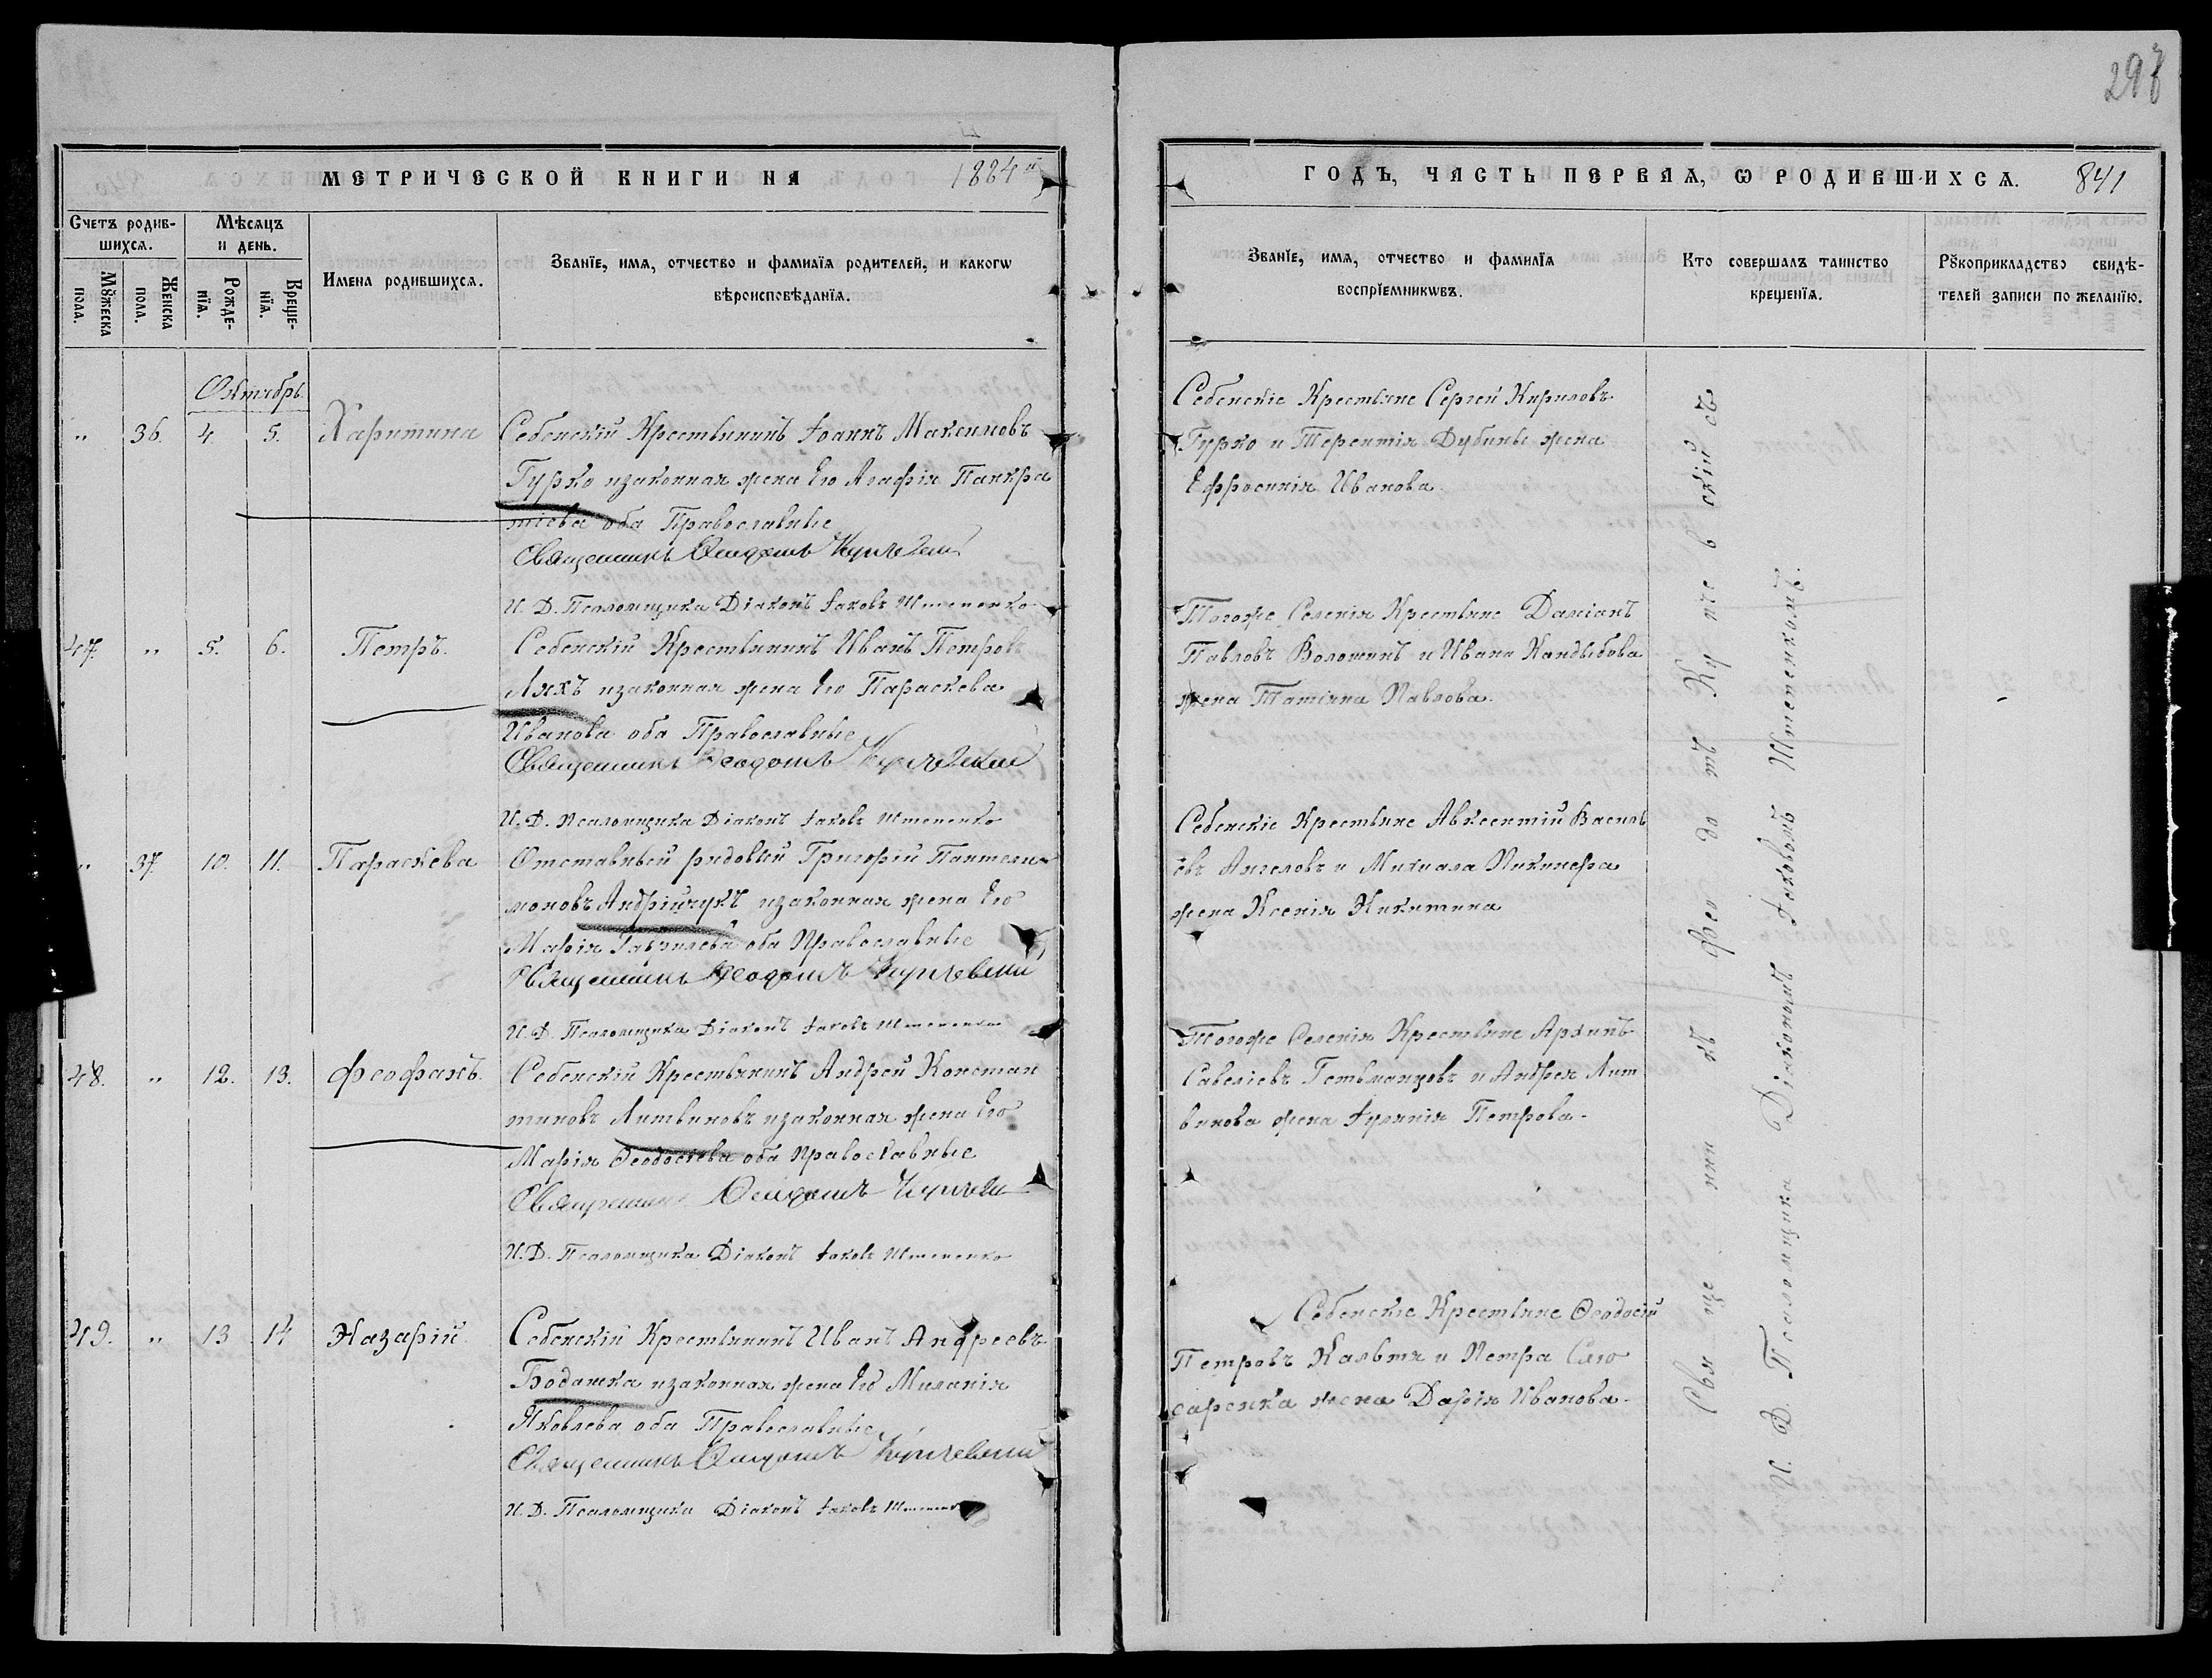 297
МЕТРИЧЕСКОЙ КНИГИ НА 1884й
ГОДЪ, ЧАСТЬ ПЕРВАЯ, Ѡ РОДИВШИХСѦ. 841
Счетъ родив-
шихсѧ.
Мѣсѧцъ
и день.
Мꙋжеска
пола.
Женска
пола.
Рожде-
нїѧ.
Креще-
нїѧ.
Имена родившихсѧ.
Званїе, имѧ, отчество и фамилїѧ родителей, и какогѡ
вѣроисповѣданїѧ.
Званїе, имѧ, отчество и фамилїѧ
воспрїемникѡвъ.
Кто совершалъ таинство
крещенїѧ.
Рꙋкоприкладство свидѣ-
телей записи по желанїю.
Октябрь
„ 36. 4. 5. Харитина
Себенскій Крестьянинъ Іоаннъ Максимовъ
Гурко изаконная жена Его Агафія Панкра
тіева оба Православные
Священникъ Феодотъ
И. Д. Псаломщика Діаконъ Іаковъ Штепенко
Себенскіе Крестьяне Сергей Кириловъ
Гурко и Терентія Дубины жена
Ефросинія Иванова.
47. „ 5. 6. Петръ.
Себенскій Крестьянинъ Иванъ Петровъ
Ляхъ изаконная жена Его Параскева
Иванова оба Православные
Священникъ Феодотъ
И. Д. Псаломщика Діаконъ Іаковъ Штепенко
Тогоже Селенія Крестьяне Даміанъ
Павловъ Волошинъ и Ивана Кандыбова
жена Татіяна Павлова.
„ 37. 10. 11. Параскева
Отставный рядовый Григорій Пантели-
моновъ Андрійчукъ изаконная жена Его
Марія Гаврилева оба Православные
Священникъ Феодотъ
И. Д. Псаломщика Діаконъ Іаковъ Штепенко
Себенскіе Крестьяне Авксентій Василь
евъ Ангеловъ и Михаила Пикинера
жена Ксенія Никитина
48. „ 12. 13. Феофанъ.
Себенскій Крестьянинъ Андрей Констан
тиновъ Литвиновъ изаконная жена Его
Марія Феодосіева оба Православные
Священникъ Феодотъ
И. Д. Псаломщика Діаконъ Іаковъ Штепенко
Тогоже Селенія Крестьяне Архипъ
Савеліевъ Гетьманцовъ и Андрея Лит
винова жена Іулянія Петрова.
49. „ 13 14 Назарій.
Себенскій Крестьянинъ Иванъ Андреевъ
Бодашка изаконная жена Его Миланія
Яковлева оба Православные
Священникъ Феодотъ
И. Д. Псаломщика Діаконъ Іаковъ
Себенскіе Крестьяне Феодосій
Петровъ Калѣтя и Петра Слю
саренка жена Дарія Иванова.
Свя ще нни къ Фео до тъ
И. Д. Псаломщика Діакономъ Іаковомъ Штепенкомъ.